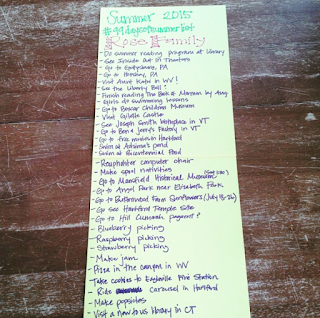 Summer 2015
#99daysofsummerlist
Rose Family
- Do summer reading program at library
- See Inside Out in Theaters
- Go to Gettysburg, PA
- Go to Hershey, PA
- Visit Aunt Katie in WV!
- See the Liberty Bell!
- Finish reading The Book of Mormon by Aug
- Girls do swimming lessons
- Go to Boston Children Museum
- Visit Gillette Castle
- See Joseph Smith birthplace in VT
- Go to Ben & Jerry's Factory in VT
- Go to free movies in Hartford
- Swim at Adriana's pond
- Swim at Bicentennial Pond
- Reupholster computer chair
- Make spool nativities
- Go to Mansfield Historical Museum
- Go to Angel Park near Elizabeth Park
- Go to Buttonwood Farm Sunflowers (July 18-26)
- Go see Hartford Temple Site
- Go to Hill Cumorah pageant?
- Blueberry picking
- Raspberry picking
- Strawberry picking
- Make jam
- Pizza in the canyon in WV
- Take cookies to Eagleville Fire Station
- Ride Carousel in Hartford
- Make popsicles
- Visit a new to us library in CT